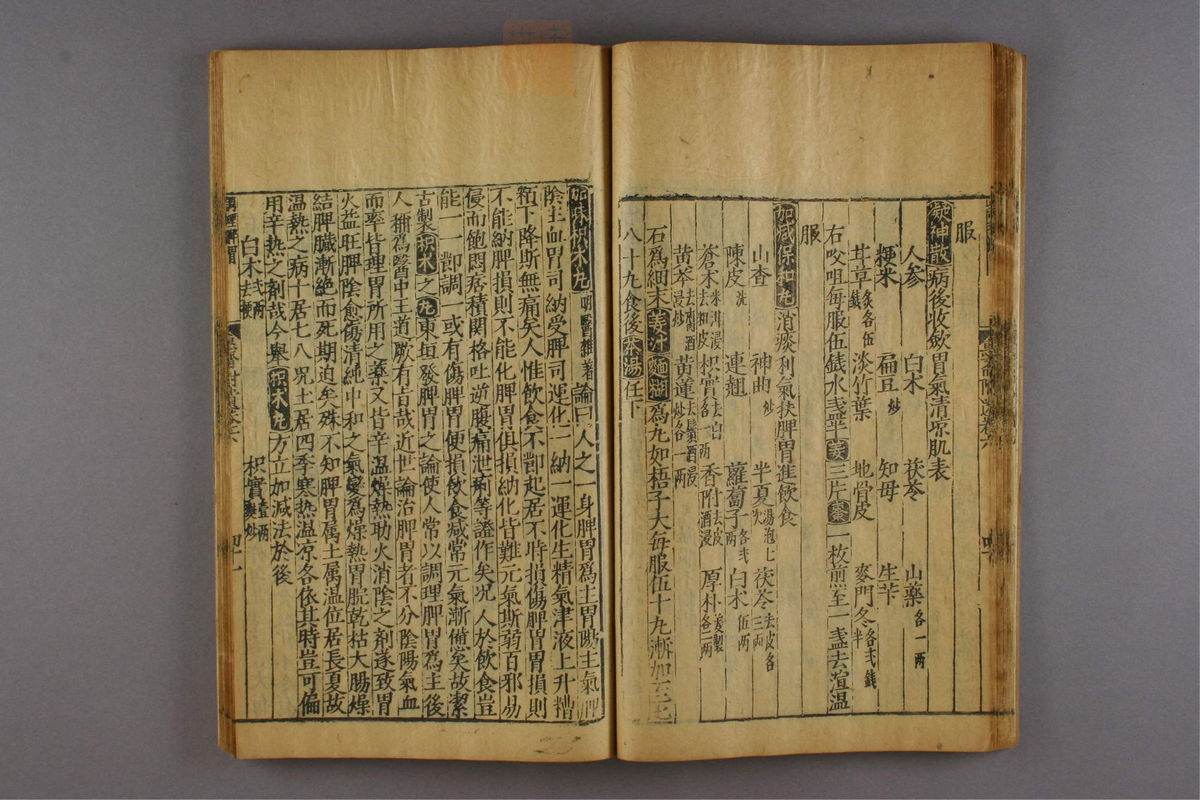 服
凝神散 病後收斂胃氣清凉肌表
人參 白术 茯苓 山藥各一兩
粳米 扁豆炒 知母 生苄
甘草炙各伍錢 淡竹葉 地骨皮 麥門冬各弍錢半
右㕮咀每服伍錢水盞半姜三片棗一枚煎至一盞去渣温
服
加減保和丸 消痰利氣扶脾胃進飲食
山查 神曲炒 半夏湯泡七次 茯苓去皮各三兩
陳皮洗 連翹 蘿蔔子各弍兩 白术伍兩
蒼术米泔浸去粗皮 枳實去白各一兩 香附去皮酒浸 厚朴姜製各二兩
黃芩去腐酒浸炒 黃蓮去鬚酒浸炒各一兩
右爲細末姜汁麵糊爲丸如梧子大每服伍十丸漸加至七
八十丸食後茶湯任下
加味枳术丸 明醫雜著論曰人之一身脾胃爲主胃陽主氣脾
陰主血胃司納受脾司運化一納一運化生精氣津液上升糟
粕下降斯無病矣人惟飲食不莭起居不時損傷脾胃胃損則
不能納脾損則不能化脾胃俱損納化皆難元氣斯弱百邪易
侵而飽悶痞積関格吐逆腹痛泄痢等證作矣况人於飲食豈
能一一莭調一或有傷脾胃便損飲食减常元氣漸憊矣故潔
古製枳术之丸東垣發脾胃之論使人常以調理脾胃爲主後
人稱爲醫中王道厥有旨哉近世論治脾胃者不分陰陽氣血
而率皆理胃所用之藥又皆辛温燥熱助火消陰之剤遂致胃
火益旺脾陰愈傷清純中和之氣變爲燥熱胃脘乾枯大腸燥
結脾臟漸絶而死期迫矣殊不知脾胃属土属温位居長夏故
温熱之病十居七八况土居四季寒热温凉各依其時豈可偏
用辛热之剤哉今舉枳术丸方立加减法於後
白术弍兩去梗 枳實壹兩麩炒
調理脾胃
四七